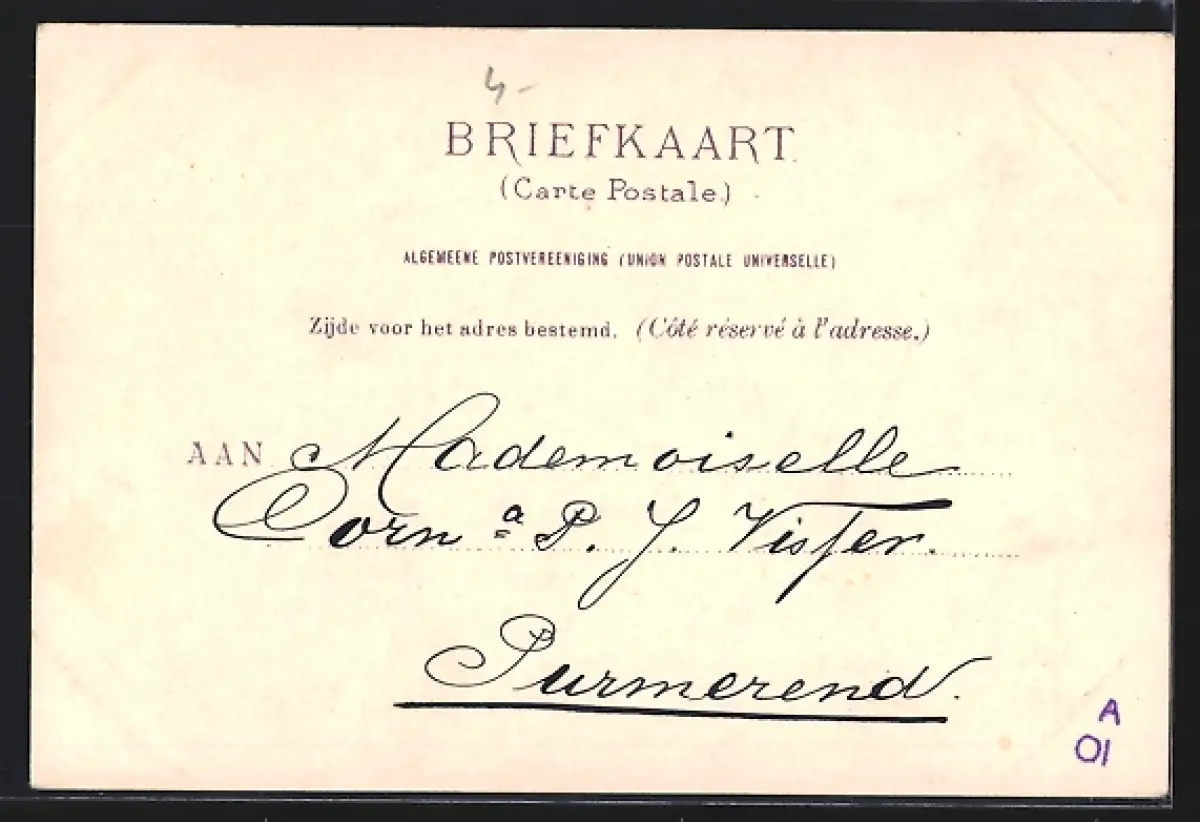 4-
BRIEFKAART
(Carte Postale.)
ALGEMEENE POSTVEREENIGING (UNION POSTALE UNIVERSELLE)
Zijde voor het adres bestemd. (Côté réservé à l'adresse.)
AAN Mademoiselle
Corn a P. J. Visser.
Purmerend.
A
01